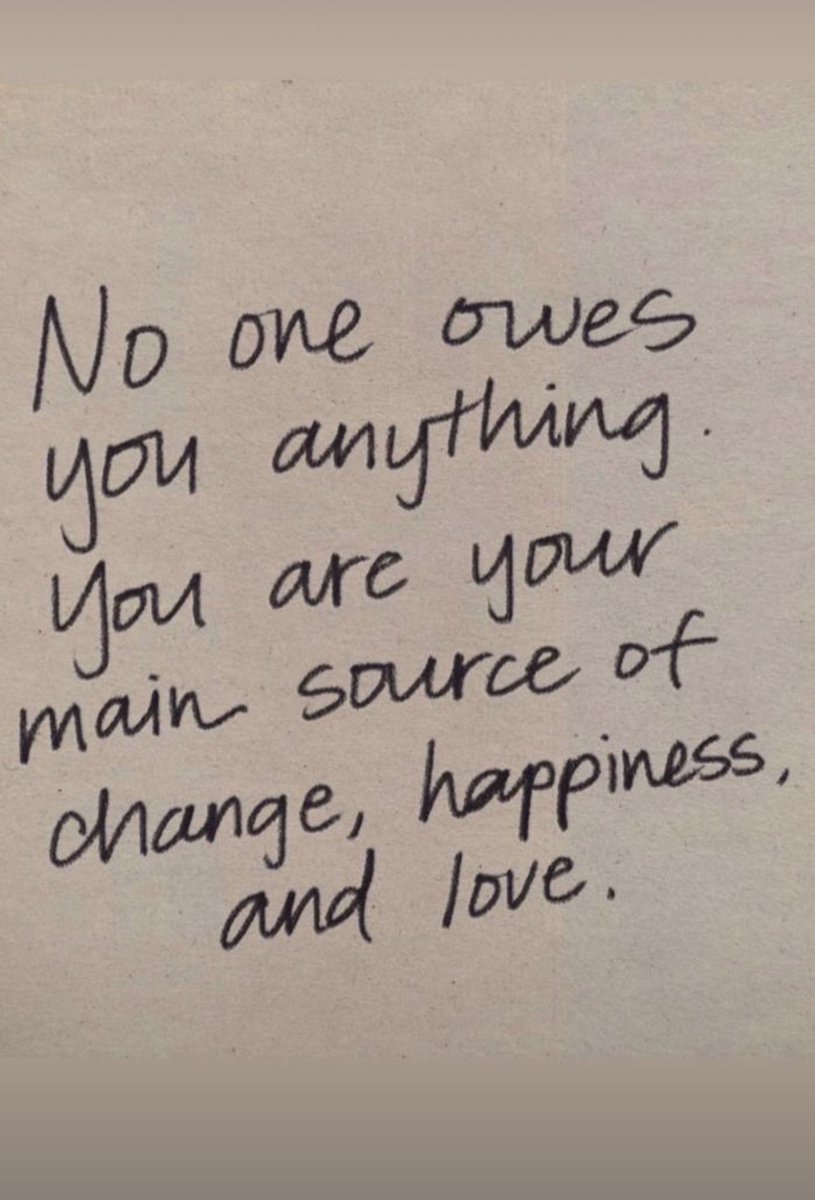 No one owes
you anything.
You are your
main source of
change, happiness,
and love.